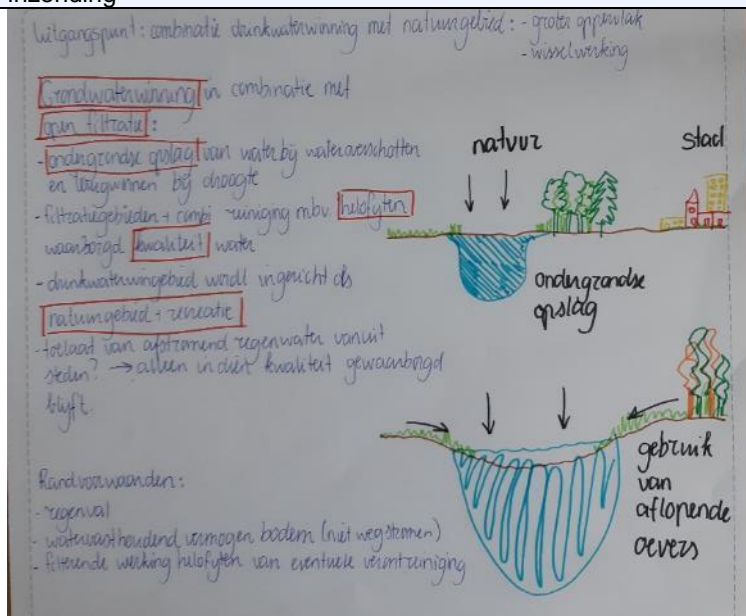 inzending
Uitgangspunt: combinatie drinkwaterwinning met natuurgebied: - groter oppervlak
- wisselwerking
Grondwaterwinning in combinatie met
open filtratie:
- ondergrondse opslag van water bij wateroverschotten
en terugwinnen bij droogte
- filtratiegebieden + combi zuiniging mbv. helofyten
waarborgd kwaliteit water
- drinkwaterwingebied wordt ingericht als
natuurgebied + recreatie
- toelaat van afstromend regenwater vanuit
steden? → alleen indien kwaliteit gewaarborgd
blijft.
Randvoorwaarden:
- regenval
- watervasthoudend vermogen bodem (niet wegstromen)
- filterende werking helofyten van eventuele verontreiniging
natuur
stad
ondergrondse
opslag
gebruik
van
aflopende
oevers